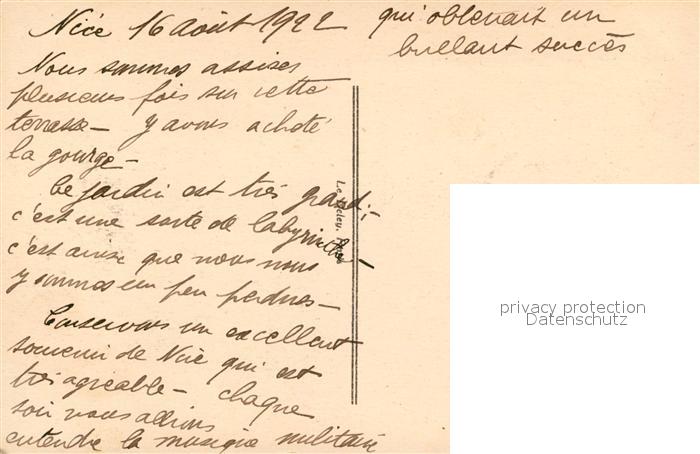 Nice 16 août 1922
Nous sommes assises
plusieurs fois sur cette
terrasse – y avons acheté
la gourge –
Le jardin est très grand; –
c'est une sorte de labyrinthe –
c'est ainsi que nous nous
y sommes un peu perdues –
Conservons un excellent
souvenir de Nice qui est
très agréable – chaque
soir nous allions
entendre la musique militaire
qui obtenait un
brillant succès
Le Deley,
privacy protection
Datenschutz